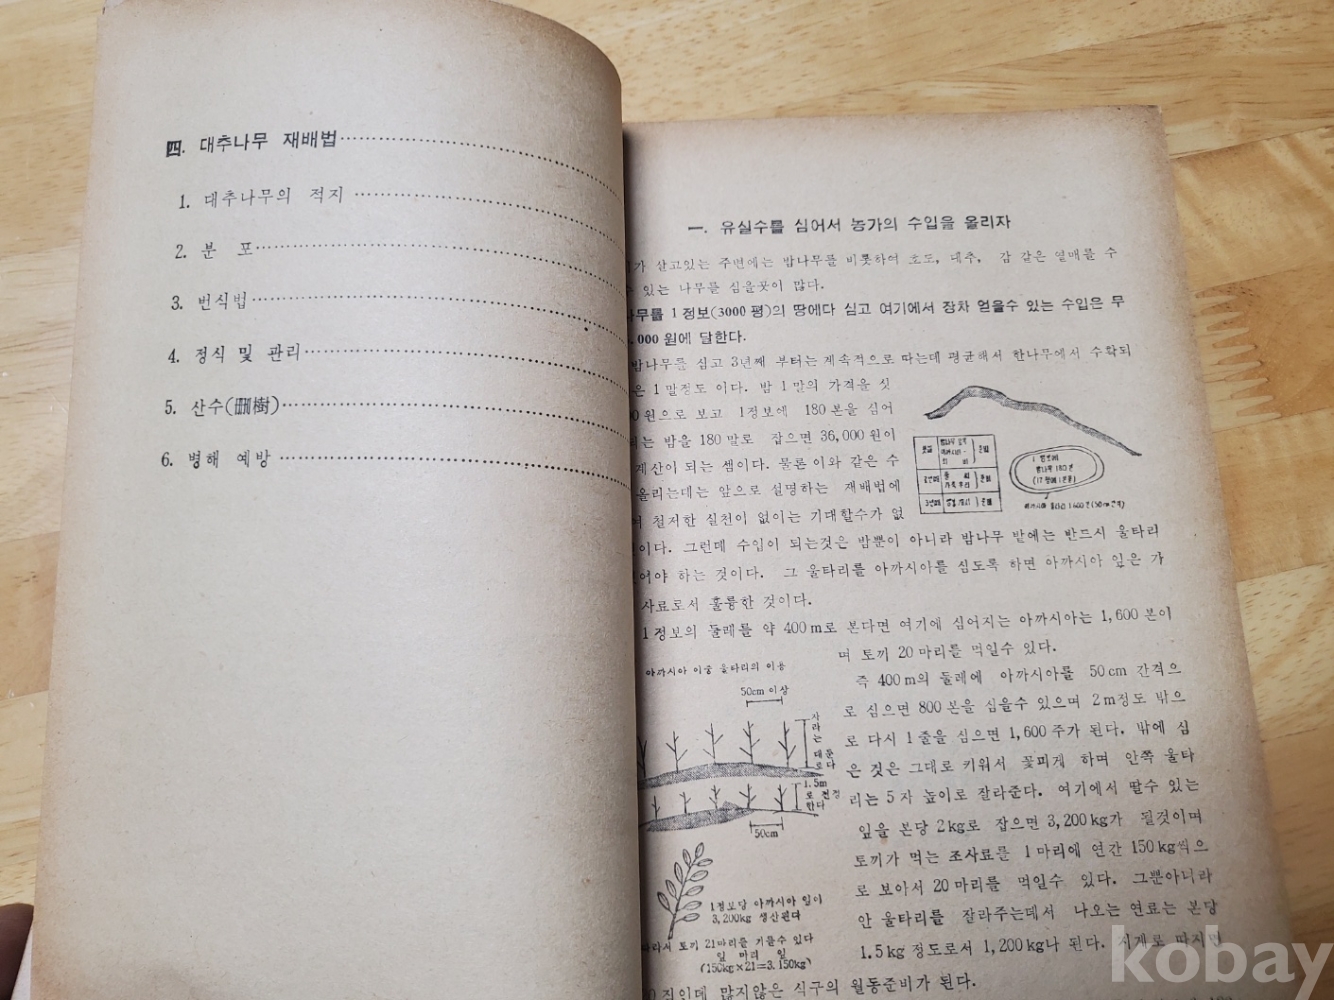 四. 대추나무 재배법
1. 대추나무의 적지
2. 분 포
3. 번식법
4. 정식 및 관리
5. 산수(刪樹)
6. 병해 예방
一. 유실수를 심어서 농가의 수입을 올리자
가 살고있는 주변에는 밤나무를 비롯하여 호도, 대추, 감 같은 열매를 수
있는 나무를 심을곳이 많다.
나무를 1정보(3000평)의 땅에다 심고 여기에서 장차 얻을수 있는 수입은 무
000원에 달한다.
밤나무를 심고 3년째 부터는 계속적으로 따는데 평균해서 한나무에서 수확되
은 1말정도 이다. 밤 1말의 가격을 싯
원으로 보고 1정보에 180본을 심어
는 밤을 180말로 잡으면 36,000원이
계산이 되는 셈이다. 물론 이와 같은 수
올리는데는 앞으로 설명하는 재배법에
철저한 실천이 없이는 기대할수가 없
이다. 그런데 수입이 되는것은 밤뿐이 아니라 밤나무 밭에는 반드시 울타리
어야 하는 것이다. 그 울타리를 아까시아를 심도록 하면 아까시아 잎은 가
사료로서 훌륭한 것이다.
1정보의 둘레를 약 400m로 본다면 여기에 심어지는 아까시아는 1,600본이
며 토끼 20마리를 먹일수 있다.
즉 400m의 둘레에 아까시아를 50cm 간격으
로 심으면 800본을 심을수 있으며 2m정도 밖으
로 다시 1줄을 심으면 1,600주가 된다. 밖에 심
은 것은 그대로 키워서 꽃피게 하며 안쪽 울타
리는 5자 높이로 잘라준다. 여기에서 딸수 있는
잎을 본당 2kg로 잡으면 3,200kg가 될것이며
토끼가 먹는 조사료를 1마리에 연간 150kg씩으
로 보아서 20마리를 먹일수 있다. 그뿐아니라
안 울타리를 잘라주는데서 나오는 연료는 본당
1.5kg 정도로서 1,200kg나 된다. 지게로 따지면
짐인데 많지않은 식구의 월동준비가 된다.
1정보에
밤나무 180본
(17평에 1본꼴)
아까시아 이중 울타리의 이용
50cm 이상
자라는 대로 둔다
1.5m로 전정한다
50cm
1정보당 아까시아 잎이
3,200kg 생산된다
따라서 토끼 21마리를 기를수 있다
잎 마리 잎
(150kg×21=3.150kg)
kobay